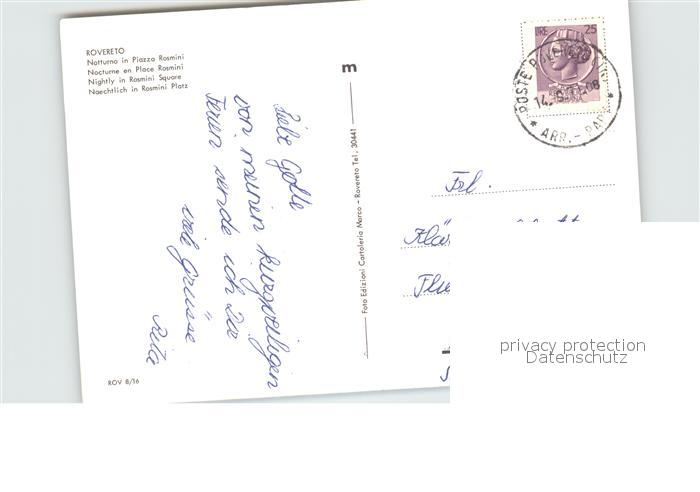 ROVERETO
Notturno in Piazza Rosmini
Nocturne en Place Rosmini
Nightly in Rosmini Square
Naechtlich in Rosmini Platz
m
Liebe Gotte
von meinen kurzweiligen
Ferien sende ich Dir
viele Grüsse
Foto Edizioni Cartoleria Marco - Rovereto Tel. 30441
LIRE 25
POSTE ROVERETO
ARR. - PAR
Frl.
ROV 8/16
privacy protection
Datenschutz